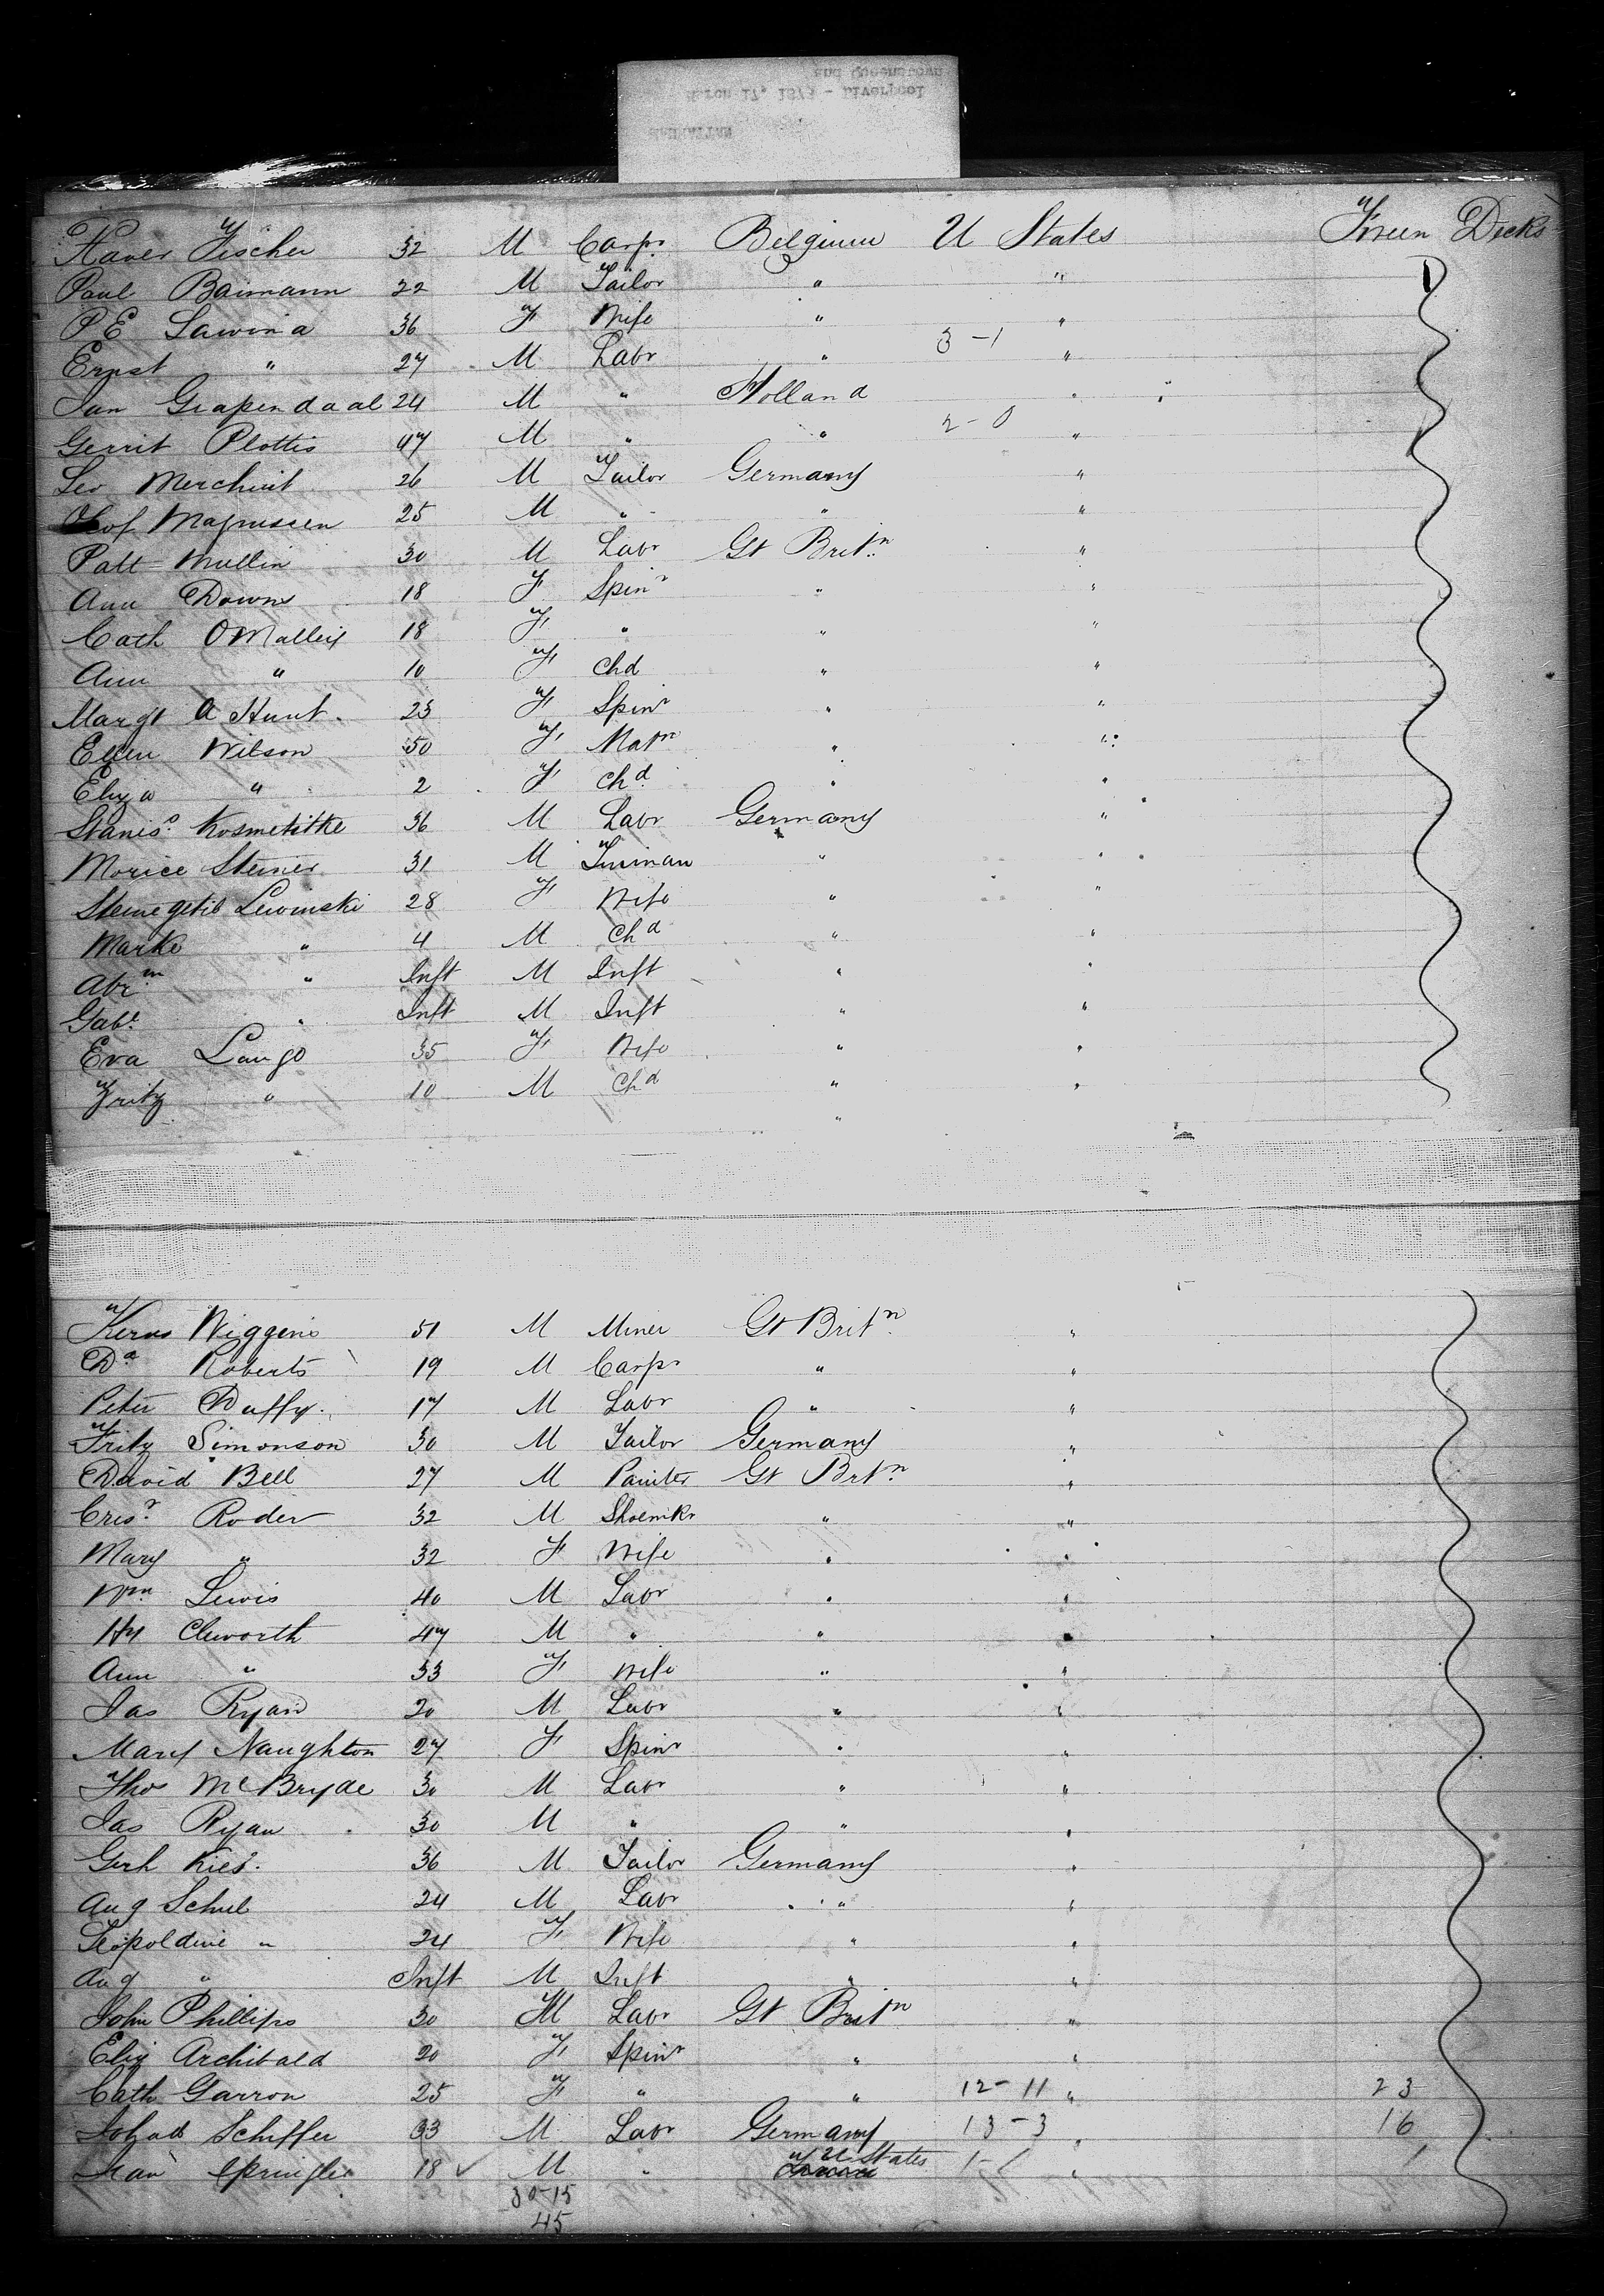 and Queenstown
March 17, 1873 - Liverpool
MANHATTAN
Xaver Fischer 32 M Carpr Belgium U States Tween Decks
Paul Baimann 22 M Tailor " "
P E Lawina 36 F Wife " "
Ernst " 27 M Labr " 3-1 "
Jan Grapendaal 24 M " Holland "
Gerrit Plottis 47 M " " 2-0 "
Leo Merchint 26 M Tailor Germany "
Olof Magnussen 25 M " " "
Patt Mullin 30 M Labr Gt Britn "
Ann Down 18 F Spinr " "
Cath OMalley 18 F " " "
Ann " 10 F Chd " "
Margt A Hunt 23 F Spinr " "
Ellen Wilson 50 F Matn " "
Eliza " 2 F Chd " "
Staniso Kosmetitke 36 M Labr Germany "
Morice Steiner 31 M " "
Lewinski 28 F Wife " "
Marke " 4 M Chd " "
Abrm " Inft M Inft " "
Gabl " Inft M Inft " "
Eva Lango 35 F Wife " "
Fritz " 10 M Chd " "
"
Wiggins 51 M Miner Gt Britn "
Da Roberts 19 M Carpr " "
Peter Duffy 17 M Labr " "
Fritz Simonson 30 M Tailor Germany "
David Bell 27 M Painter Gt Brtn "
Crisr Roder 32 M Shoemkr " "
Mary " 32 F Wife " "
Wm Lewis 40 M Labr " "
Hy Cleworth 47 M " " "
Ann " 33 F Wife " "
Jas Ryan 20 M Labr " "
Mary Naughton 27 F Spinr " "
Thos McBryde 30 M Labr " "
Jas Ryan 30 M " " "
Gerh Kies 36 M Tailor Germany "
Aug Schul 24 M Labr " "
Leopoldine " 24 F Wife " "
Aug " Inft M Inft " "
John Phillips 30 M Labr Gt Britn "
Eliz Archibald 20 F Spinr " "
Cath Garron 25 F " " 12-11 " 23
Schiffer 33 M Labr Germany 13-3 " 16
18 M " U States "
30-15
45